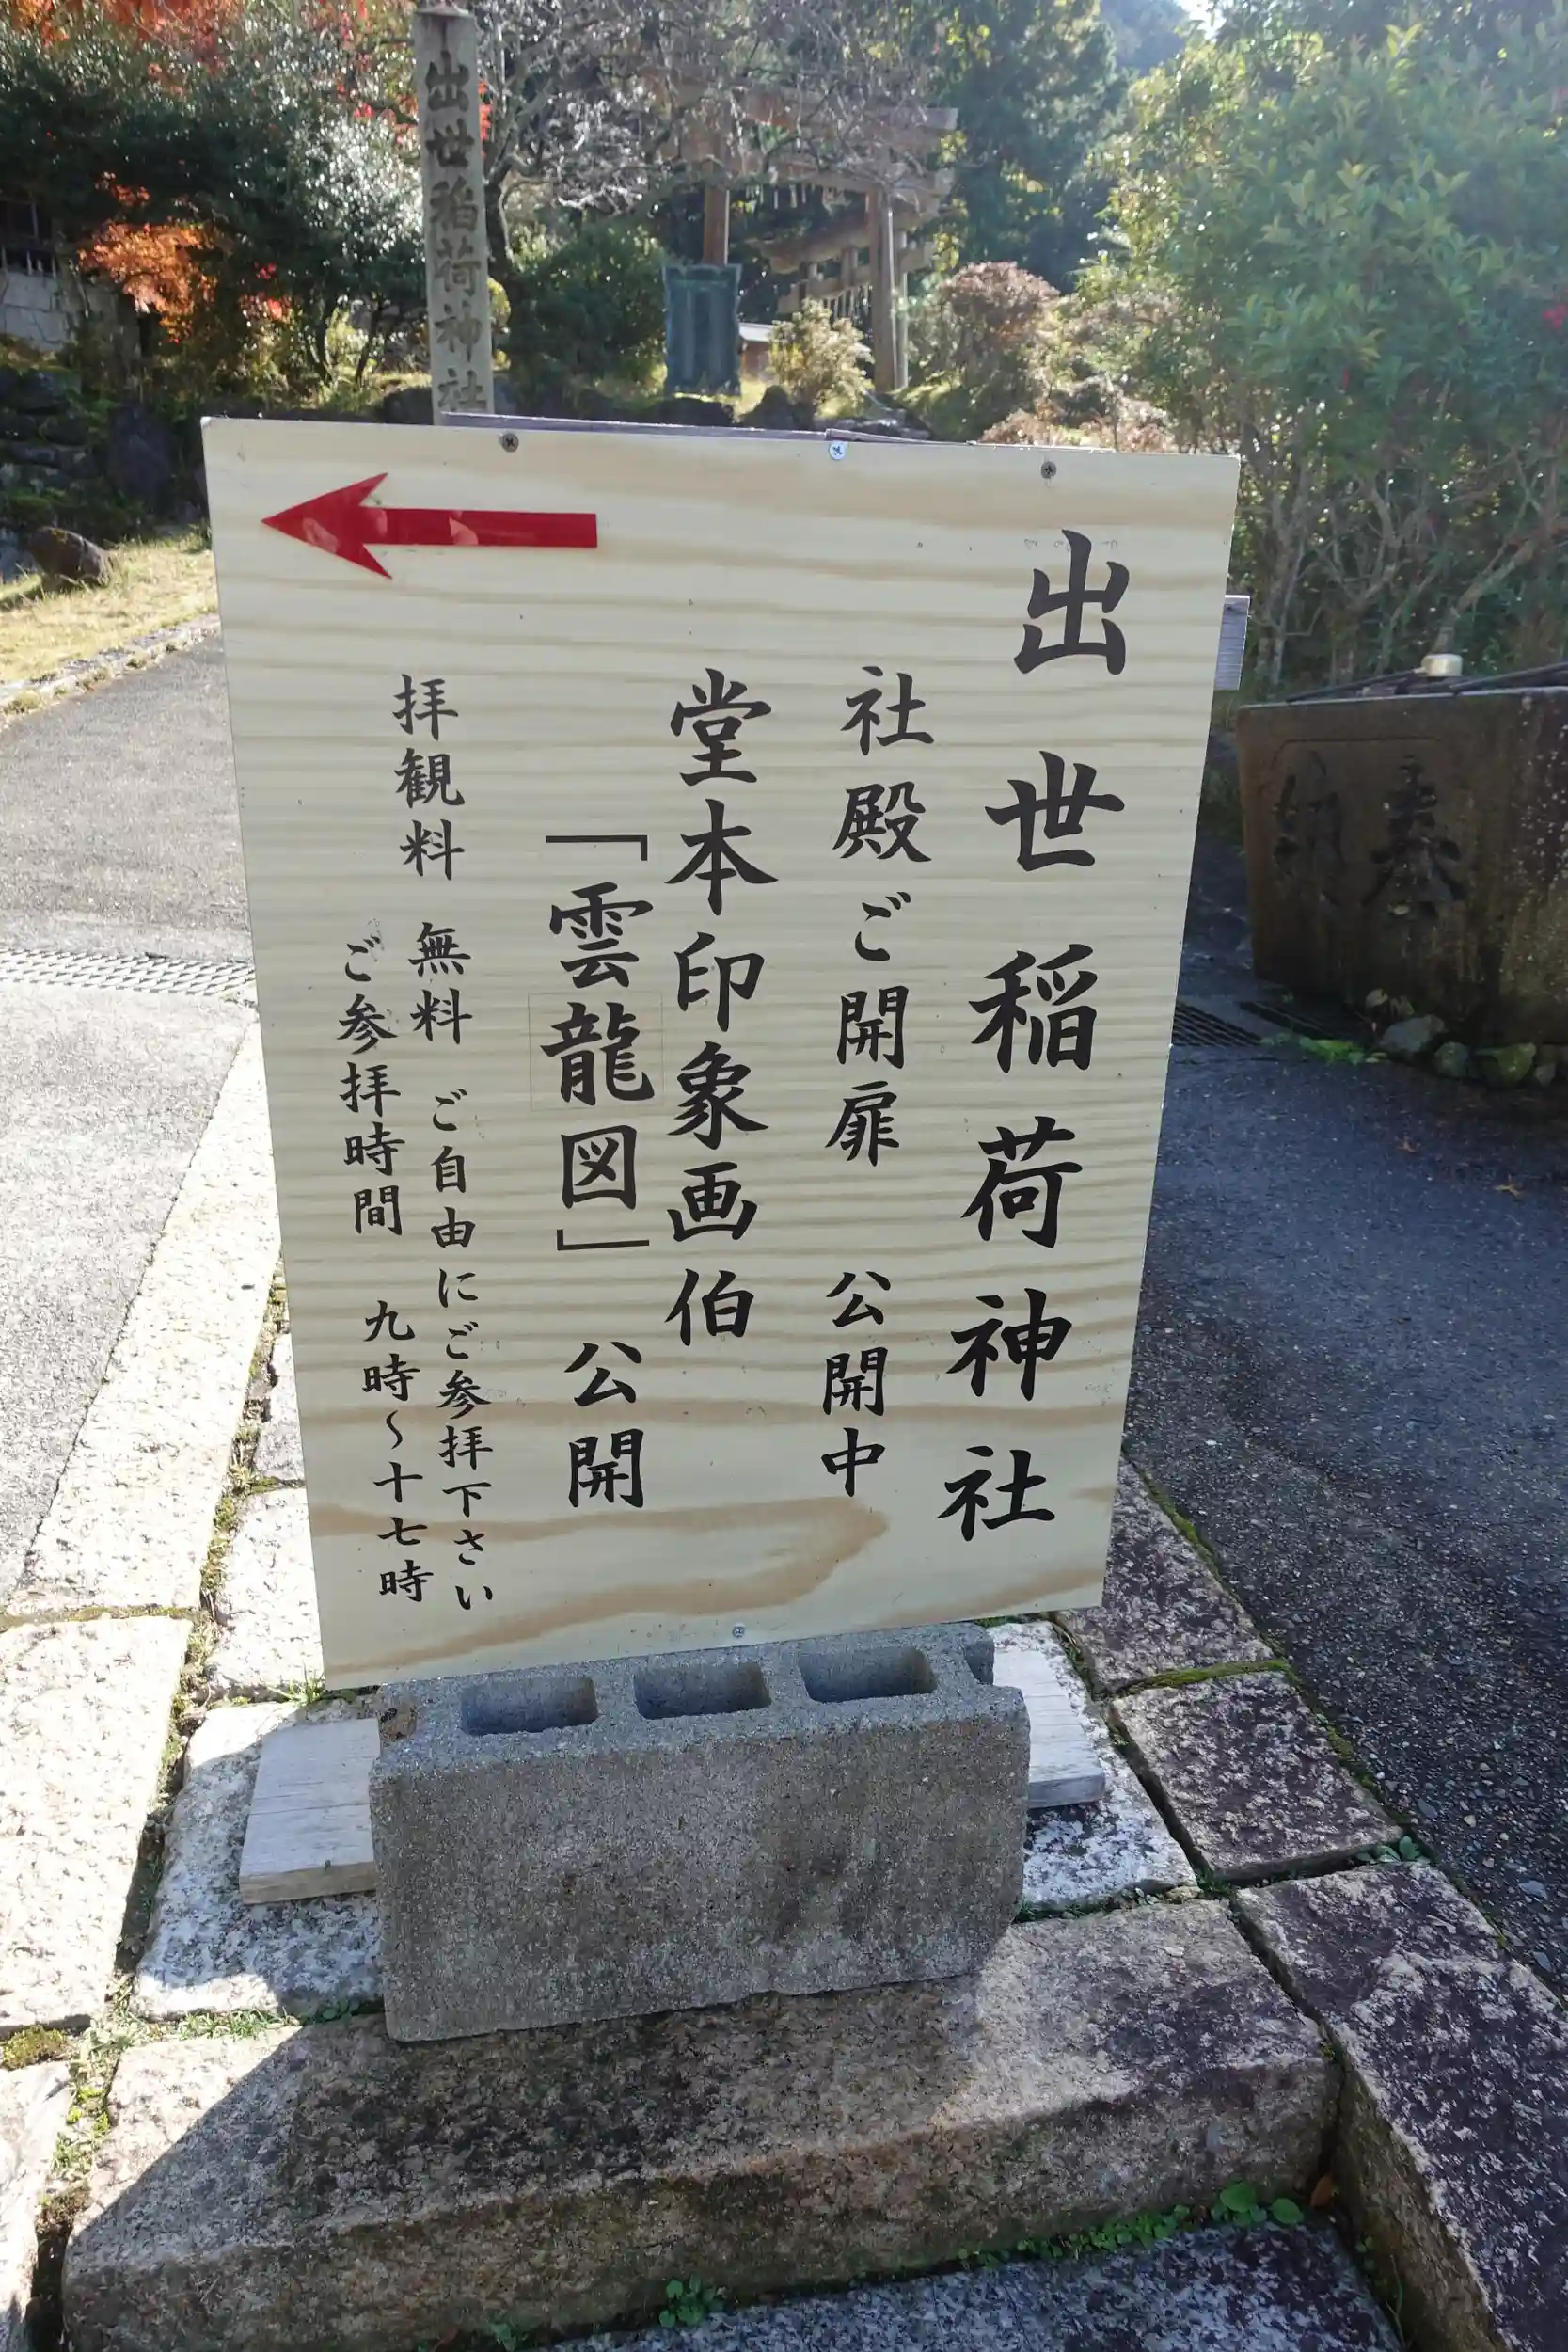 出世稲荷神社
社殿ご開扉 公開中
堂本印象画伯
「雲龍図」 公開
拝観料 無料 ご自由にご参拝下さい
ご参拝時間 九時~十七時
出世稲荷神社
奉